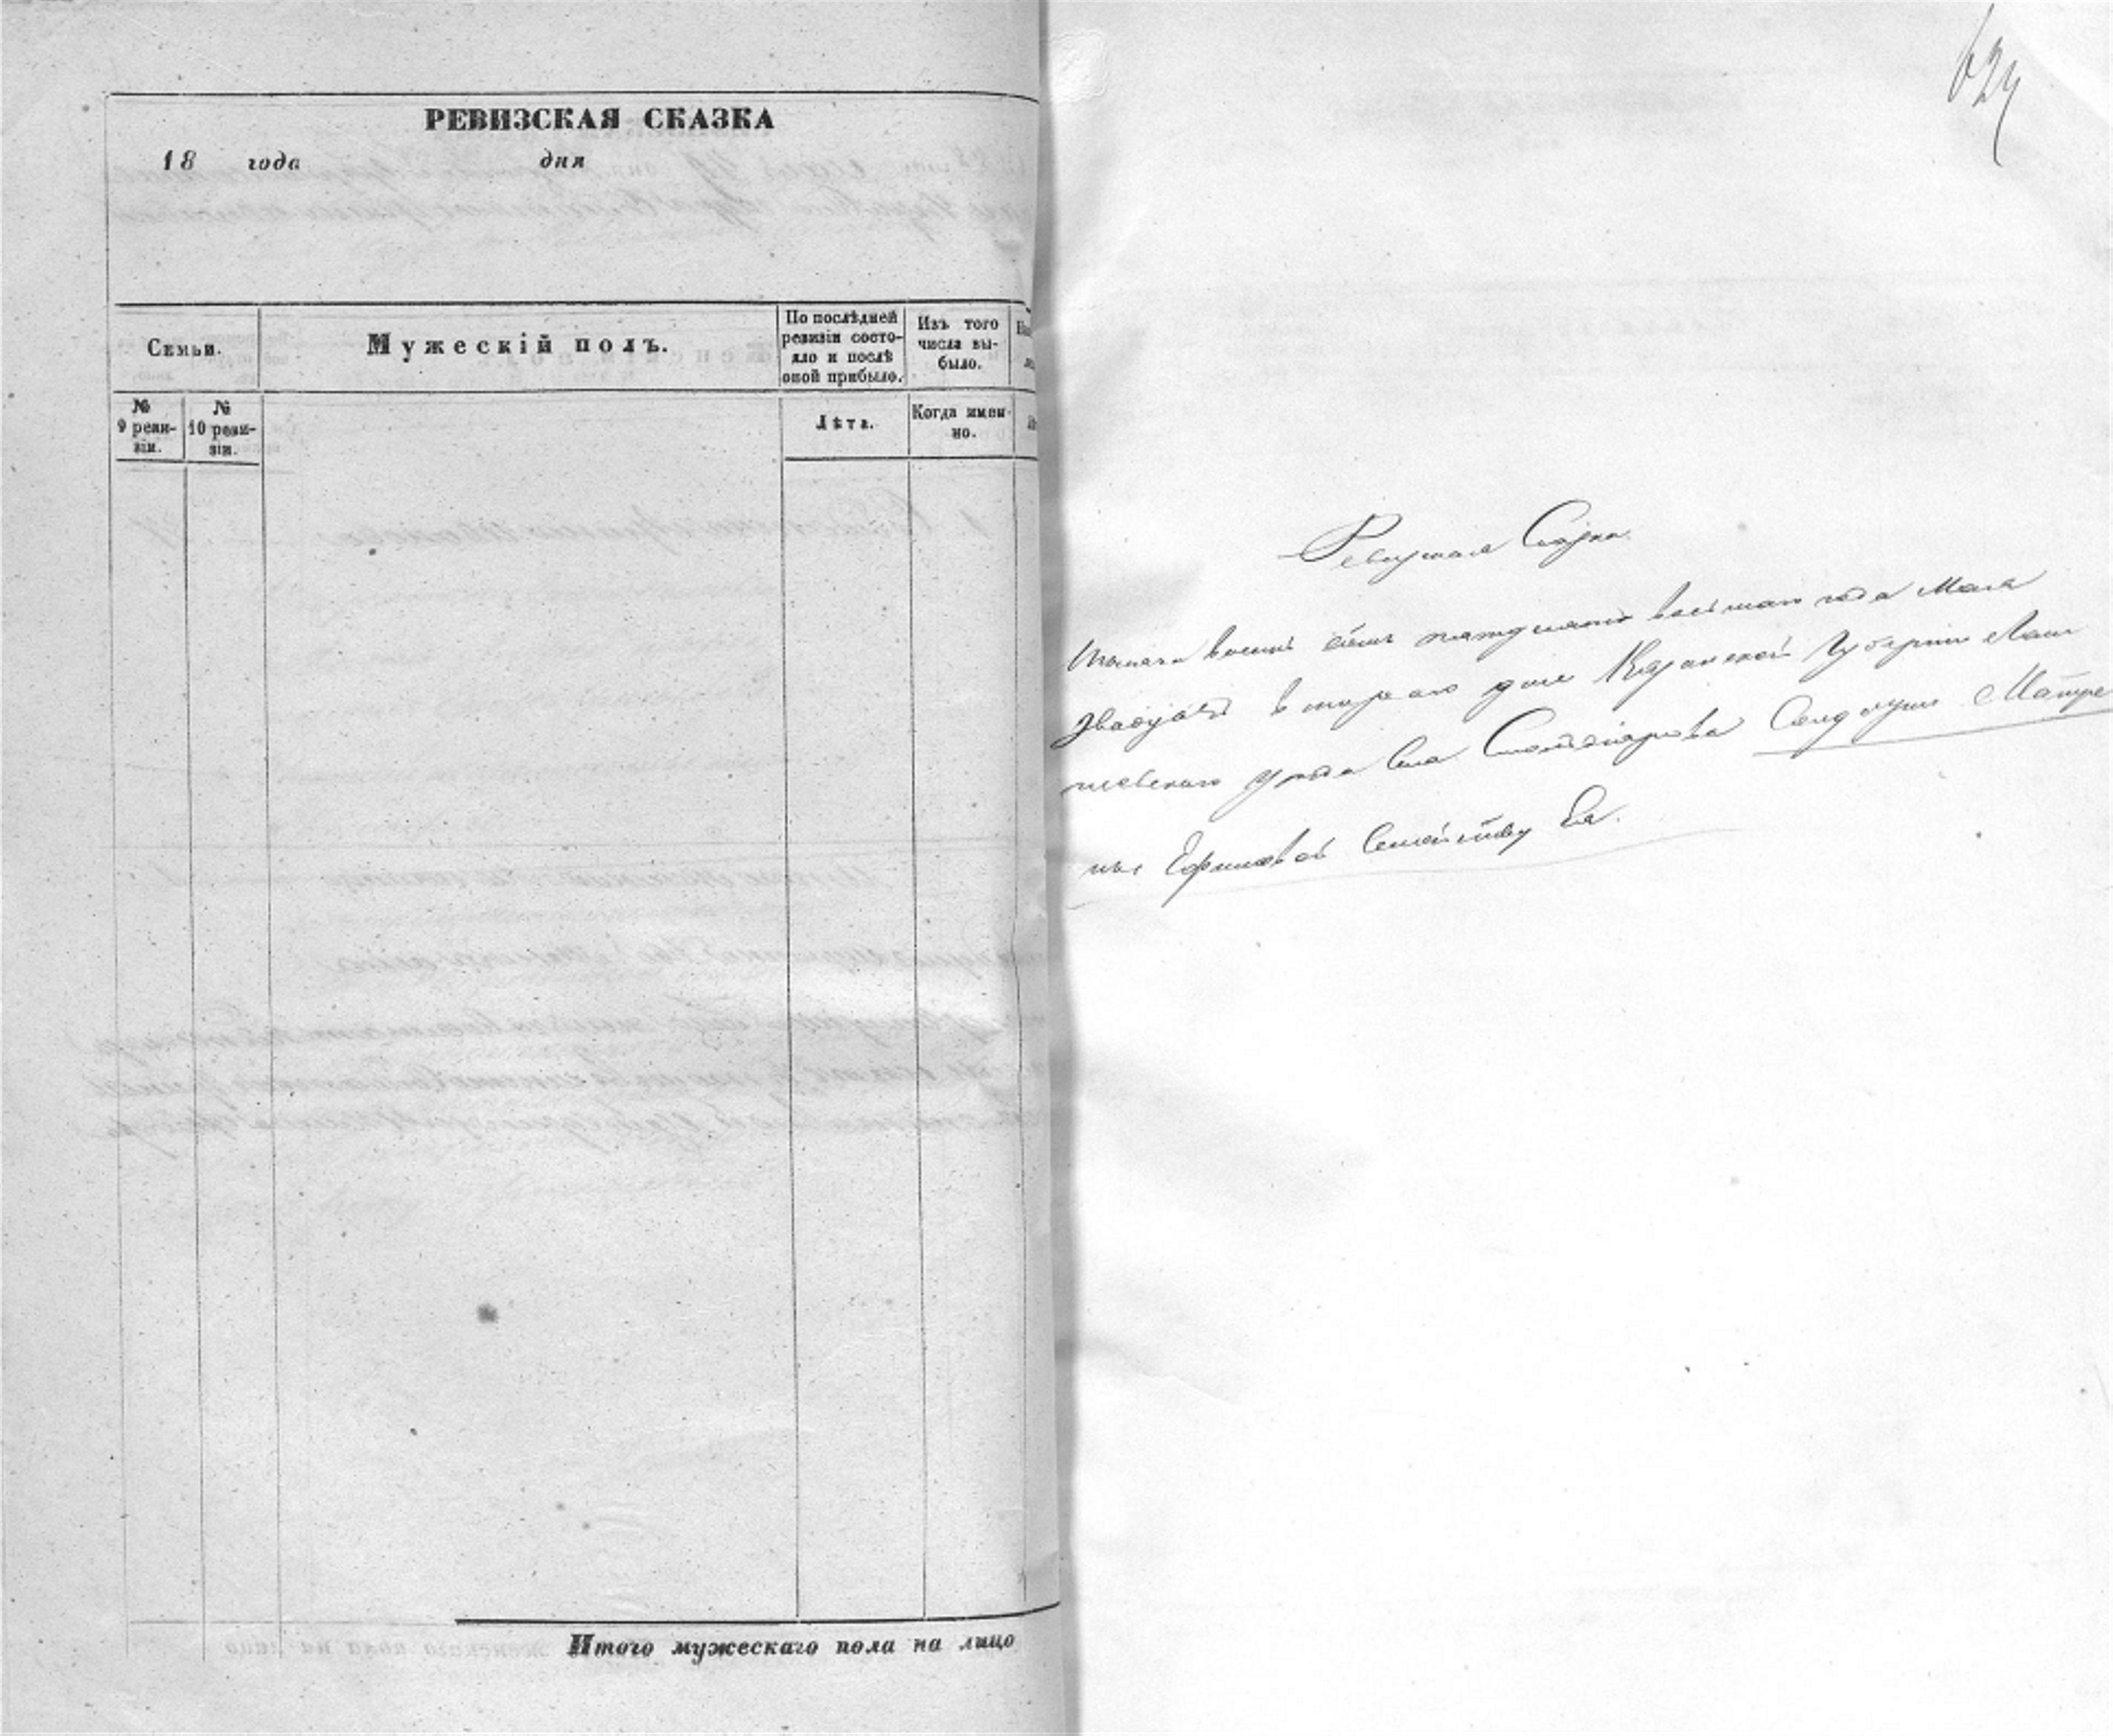 РЕВИЗСКАЯ СКАЗКА
18 года дня
Семьи.
Мужескій полъ.
По послѣдней
ревизіи состо-
яло и послѣ
оной прибыло.
Изъ того
числа вы-
было.
№
9 реви-
зіи.
№
10 реви-
зіи.
Лѣта.
Когда имен-
но.
Итого мужескаго пола на лицо
624
Ревизская Сказка
Тысяча восемь сотъ пятдесятъ восьмаго года Маія
двадцать втораго дня Казанской Губерніи Лаи
шевскаго уѣзда Села Солдатки Матре
ны Ефимовой Семейству Ея.